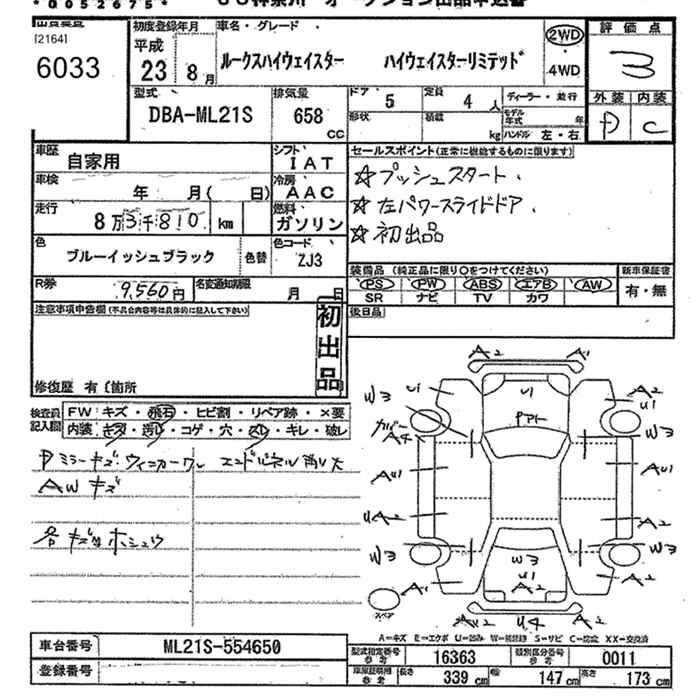 *0052675*
[2164]
6033
初度登録年月
平成
23年 8月
車名・グレード
ルークスハイウェイスター ハイウェイスターリミテッド
2WD
・4WD
評価点
3
外装 内装
D C
型式
DBA-ML21S
排気量
658 CC
ドア・ 5
定員 4人
形状
積載 kg
ディーラー・並行
モデル年式 年
ハンドル 左・右
車歴
自家用
シフト
IAT
車検
年 月( 日)
冷房
AAC
走行
8万3千810 km
燃料
ガソリン
色
ブルーイッシュブラック
色替
色コード
ZJ3
R券
9,560円
名変通知期限
月 日
セールスポイント(正常に機能するものに限ります)
☆プッシュスタート.
☆左パワースライドドア.
☆初出品
装備品(純正品に限り○をつけてください)
PS PW ABS エアB AW
SR ナビ TV カワ
新車保証書
有・無
後日品
注意事項申告欄(不具合内容等は具体的に記入して下さい)
初出品
修復歴 有〔箇所
検査員記入欄
FW キズ・飛石・ヒビ割・リペア跡・×要
内装 キズ・汚レ・コゲ・穴・スレ・キレ・破レ
AW キズ
A2 A1
W3 U1 U1 A2 U1
PP1
A4 W3
AU1 AU1
UA2 A2
W3 W3 W3
U1
A1 A2 A2
AU2 U4 A2
スペア
A=キズ E=エクボ U=凹み W=補修跡 S=サビ C=腐蝕 XX=交換済
車台番号
ML21S-554650
登録番号
型式指定番号 参考
16363
類別区分番号 参考
0011
車庫証明用 参考
長さ 339 cm 幅 147 cm 高さ 173 cm